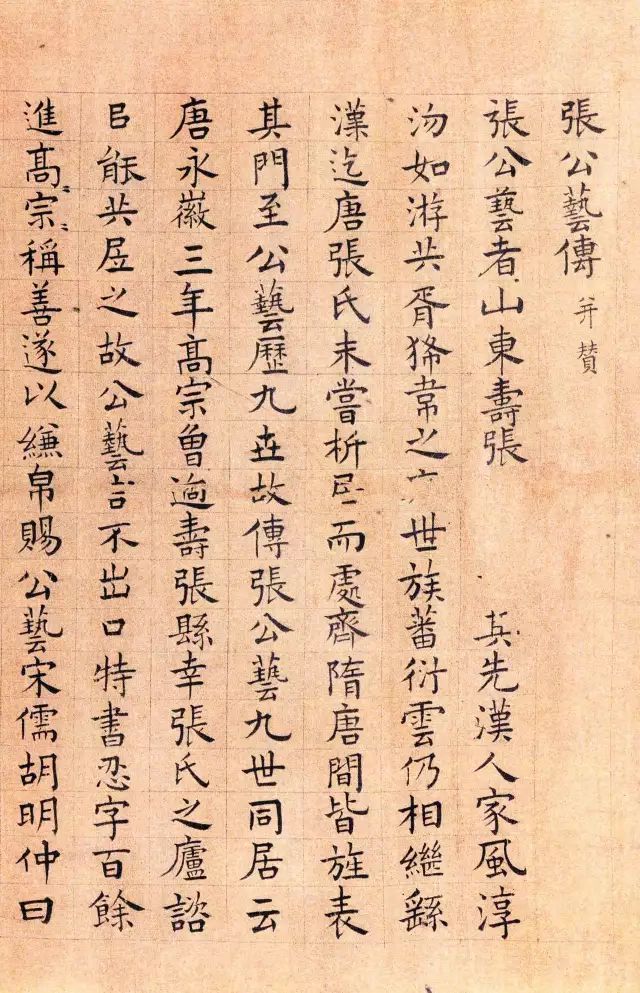 張公藝傳 并賛
張公藝者山東壽張 其先漢人家風淳
沕如游共胥狶韋之世族蕃衍雲仍相繼繇
漢迄唐張氏未嘗析居而處齊隋唐間皆旌表
其門至公藝歷九世故傳張公藝九世同居云
唐永徽三年高宗曾過壽張縣幸張氏之廬諮
㠯能共居之故公藝言不出口特書忍字百餘
進高宗稱善遂以縑帛賜公藝宋儒胡明仲曰